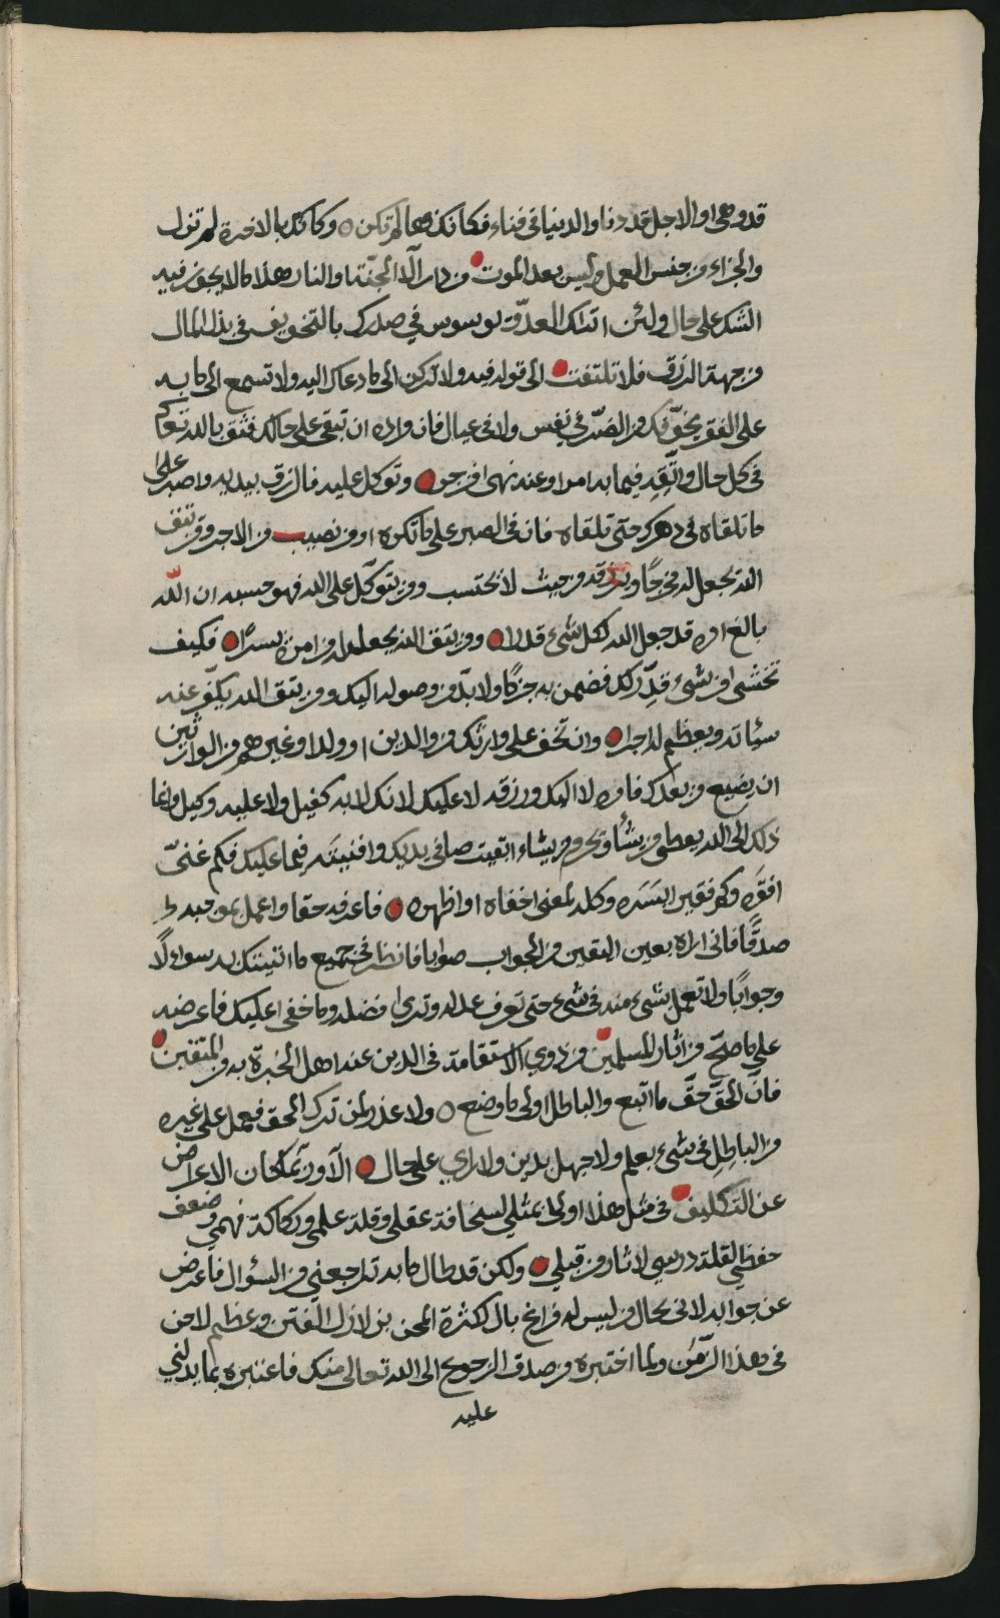 قد وهى والاجل قد دنا والدنيا فى فناء فكانك بها لم تكن ٥ وكانك بالاخرة لم تزل
والجزاء من جنس العمل وليس بعد الموت من دار الا الجنّة او النار هذا ما لا يجوز فيه
الشك على حال ولئن اتاك العدوّ يوسوس في صدرك بالتخويف فى بذل المال
من جهة الرزق فلا تلتفت الى قوله فيه ولا تركن الى ما دعاك اليه ولا تسمع الى ما به
على الفقر يخوّفك من الضرّ في نفس ولا فى عيال فان مراده ان تبقى على حالك فثق بالله تعالى
فى كل حال واتّقه فيما به امر او عنه نهى او زجر وتوكل عليه فالرزق بيديه واصبر على
ما تلقاه في دهرك حتى تلقاه فان فى الصبر على ما تكره اوفر نصيب من الاجر ومن يتق
الله يجعل له مخرجًا ويرزقه من حيث لا يحتسب ومن يتوكّل على الله فهو حسبه ان الله
بالغ امره قد جعل الله لكل شىء قدرا ومن يتق الله يجعل له من امره يسرًا فكيف
تخشى من شىء قدّر لك فضمن به جزمًا ولا بدّ من وصوله اليك ومن يتق الله يكفّر عنه
سيئاته ويعظم له اجرا وان تخف على وارثك من والدين او ولد او غيرهم من الوارثين
ان يضيع من بعدك فامره لا اليك ورزقه لا عليك لانك لا به كفيل ولا عليه وكيل وانما
ذلك الى الله يعطى من يشأ ويحرم من يشاء ابقيت ما فى يديك او افنيته فما عليك فكم غنىّ
افقره وكم فقير ايسره وكله لمعنى اخفاه او اظهره فاعرفه حقا واعمل بموجبه
صدقًا فانى اراه بعين اليقين من الجواب صوابا فانظر فى جميع ما اتيتك به سوالًا
وجوابًا ولا تعمل بشىء منه فى شىء حتى تعرف عدله وتدرى فضله وما خفى عليك فاعرضه
على ما صحّ من اثار المسلمين من ذوي الاستقامة فى الدين عند اهل الخبرة به والمتقين
فانّ الحقّ حقّ ما اتبع والباطل اولى ما وضع ٥ ولا عذر لمن ترك الحق فيعمل على غيره
من الباطل فى شىء بعلم ولا جهل بدين ولا راي على حال الا وربّما كان الاعراض
عن التكليف فى مثل هذا اولى بمثلي لسخافة عقلي وقلة علمي وركاكة فهمي وضعف
حفظي لقلة درسي لاثار من قبلي ولكن قد طال ما به تراجعني من السؤال فاعرض
عن جوابه لانى بحال من ليس له فراغ بال لكثرة المحن بزلازل الفتن وعظم الاحن
فى هذا الزّمن ولما اختبره من صدق الرجوع الى الله تعالى منك فاعتبره بما يدلني
عليه